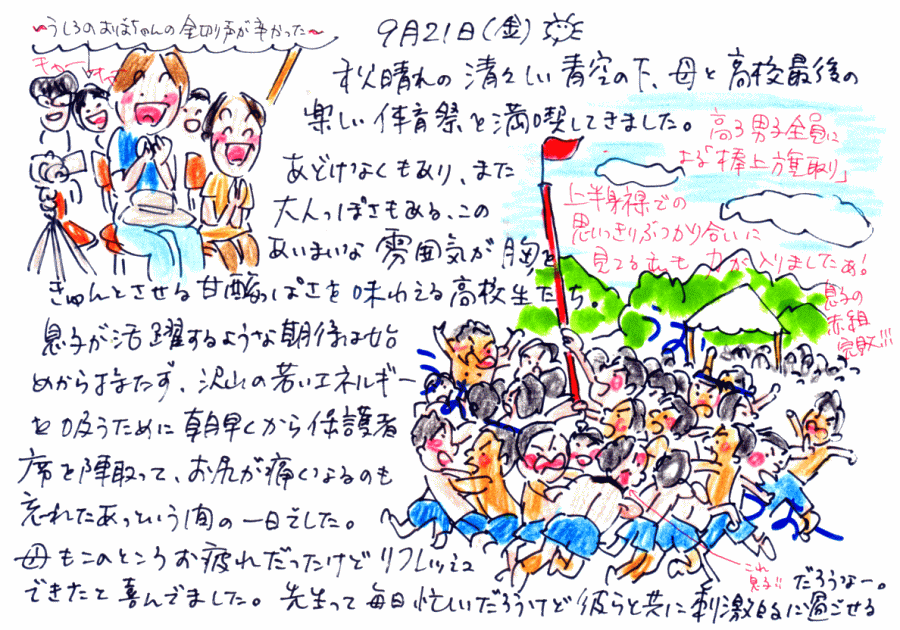 ～うしろのおばちゃんの金切り声が辛かった～
9月21日(金)
キャー
秋晴れの清々しい青空の下、母と高校最後の
楽しい体育祭を満喫してきました。
あどけなくもあり、また
大人っぽさもある、この
あいまいな雰囲気が胸を
きゅんとさせる甘酸っぱさを味わえる高校生たち。
息子が活躍するような期待は始
めから持たず、沢山の若いエネルギー
を吸うために朝早くから保護者
席を陣取って、お尻が痛くなるのも
忘れたあっという間の一日でした。
母もこのところお疲れだったけどリフレッシュ
できたと喜んでました。先生って毎日忙しいだろうけど彼らと共に刺激的に過ごせる
だろうなー。
高3男子全員に
よる「棒上旗取り」
上半身裸での
思いっきりぶつかり合いに
見てる方も力が入りましたぁ!
息子の
赤組
完敗!!!
うおー
うおー
これ
息子!!